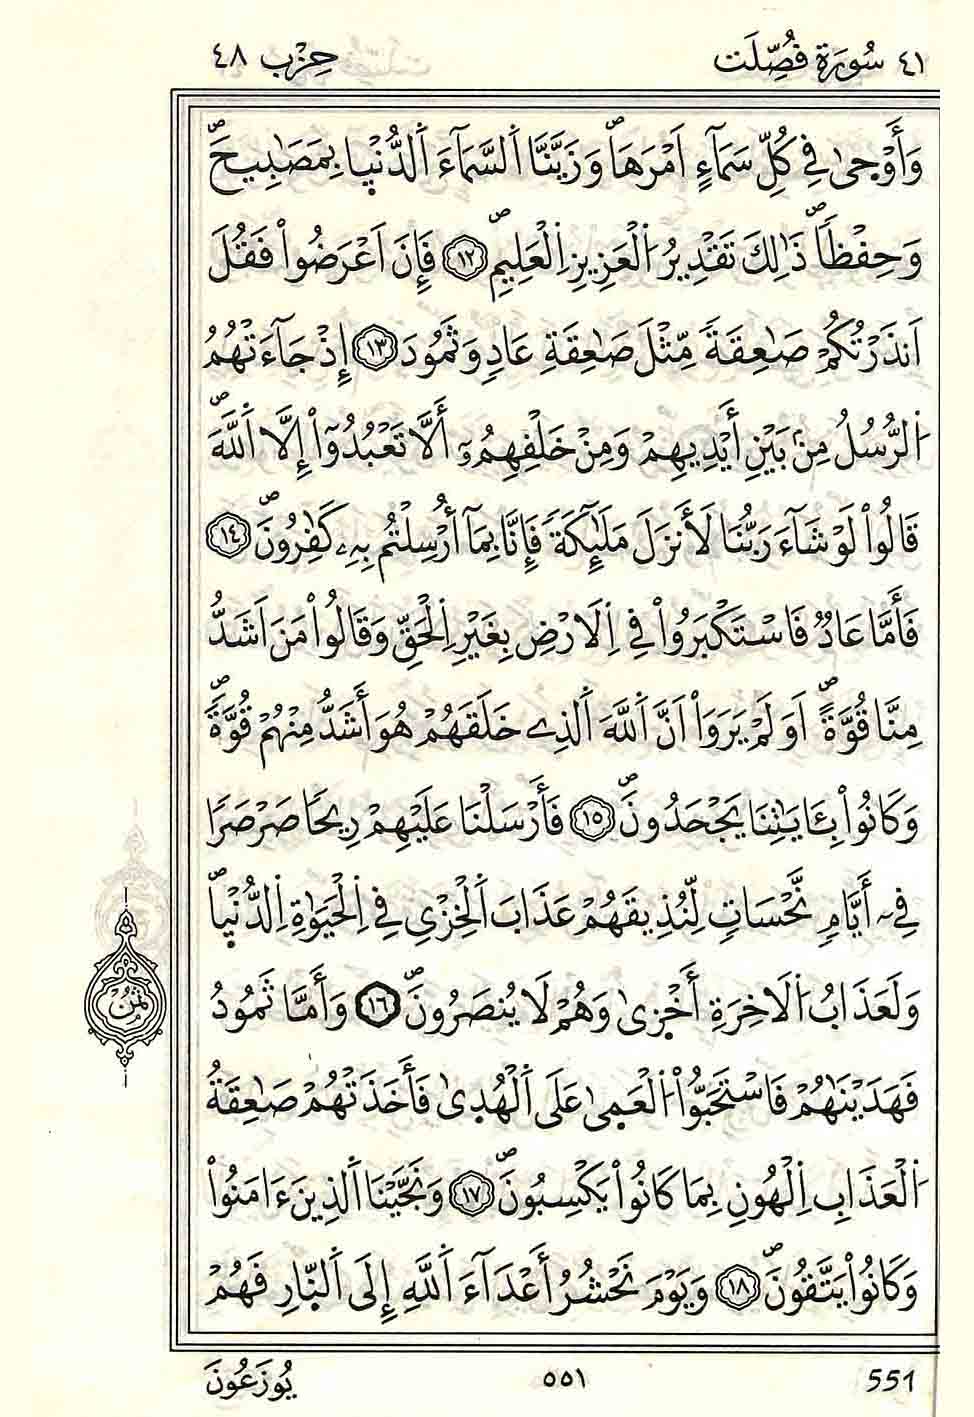 ٤١ سُورَةُ فُصِّلَت حِزْب ٤٨
وَأَوْحىٰ فِي كُلِّ سَمَآءٍ اَمْرَهَاۖ وَزَيَّنَّا اَ۬لسَّمَآءَ اَ۬لدُّنْي۪ا بِمَصَٰبِيحَۖ
وَحِفْظاٗۖ ذَٰلِكَ تَقْدِيرُ اُ۬لْعَزِيزِ اِ۬لْعَلِيمِۖ ۝١٢ فَإِنَ اَعْرَضُواْ فَقُلَ
اَنذَرْتُكُمْ صَٰعِقَةٗ مِّثْلَ صَٰعِقَةِ عَادٖ وَثَمُودَ ۝١٣ إِذْ جَآءَتْهُمُ
اُ۬لرُّسُلُ مِنۢ بَيْنِ أَيْدِيهِمْ وَمِنْ خَلْفِهِمُۥٓ أَلَّا تَعْبُدُوٓاْ إِلَّا اَ۬للَّهَۖ
قَالُواْ لَوْ شَآءَ رَبُّنَا لَأَنزَلَ مَلَٰٓئِكَةٗ فَإِنَّا بِمَآ أُرْسِلْتُم بِهِۦ كَٰفِرُونَۖ ۝١٤
فَأَمَّا عَادٞ فَاسْتَكْبَرُواْ فِي اِ۬لَارْضِ بِغَيْرِ اِ۬لْحَقِّ وَقَالُواْ مَنَ اَشَدُّ
مِنَّا قُوَّةًۖ اَوَ لَمْ يَرَوَاْ اَنَّ اَ۬للَّهَ اَ۬لذِے خَلَقَهُمْ هُوَ أَشَدُّ مِنْهُمْ قُوَّةٗۖ
وَكَانُواْ بِـَٔايَٰتِنَا يَجْحَدُونَۖ ۝١٥ فَأَرْسَلْنَا عَلَيْهِمْ رِيحاٗ صَرْصَراٗ
فِےٓ أَيَّامٖ نَّحْسَاتٖ لِّنُذِيقَهُمْ عَذَابَ اَ۬لْخِزْيِ فِي اِ۬لْحَيَوٰةِ اِ۬لدُّنْي۪اۖ
وَلَعَذَابُ اُ۬لَاخِرَةِ أَخْزىٰ وَهُمْ لَا يُنصَرُونَۖ ۝١٦ وَأَمَّا ثَمُودُ
فَهَدَيْنَٰهُمْ فَاسْتَحَبُّواْ اُ۬لْعَم۪ىٰ عَلَى اَ۬لْهُد۪ىٰ فَأَخَذَتْهُمْ صَٰعِقَةُ
اُ۬لْعَذَابِ اِ۬لْهُونِ بِمَا كَانُواْ يَكْسِبُونَۖ ۝١٧ وَنَجَّيْنَا اَ۬لذِينَ ءَامَنُواْ
وَكَانُواْ يَتَّقُونَۖ ۝١٨ وَيَوْمَ نَحْشُرُ أَعْدَآءَ اَ۬للَّهِ إِلَى اَ۬لنّ۪ارِ فَهُمْ
ثُمُن
يُوزَعُونَ ٥٥١ 551